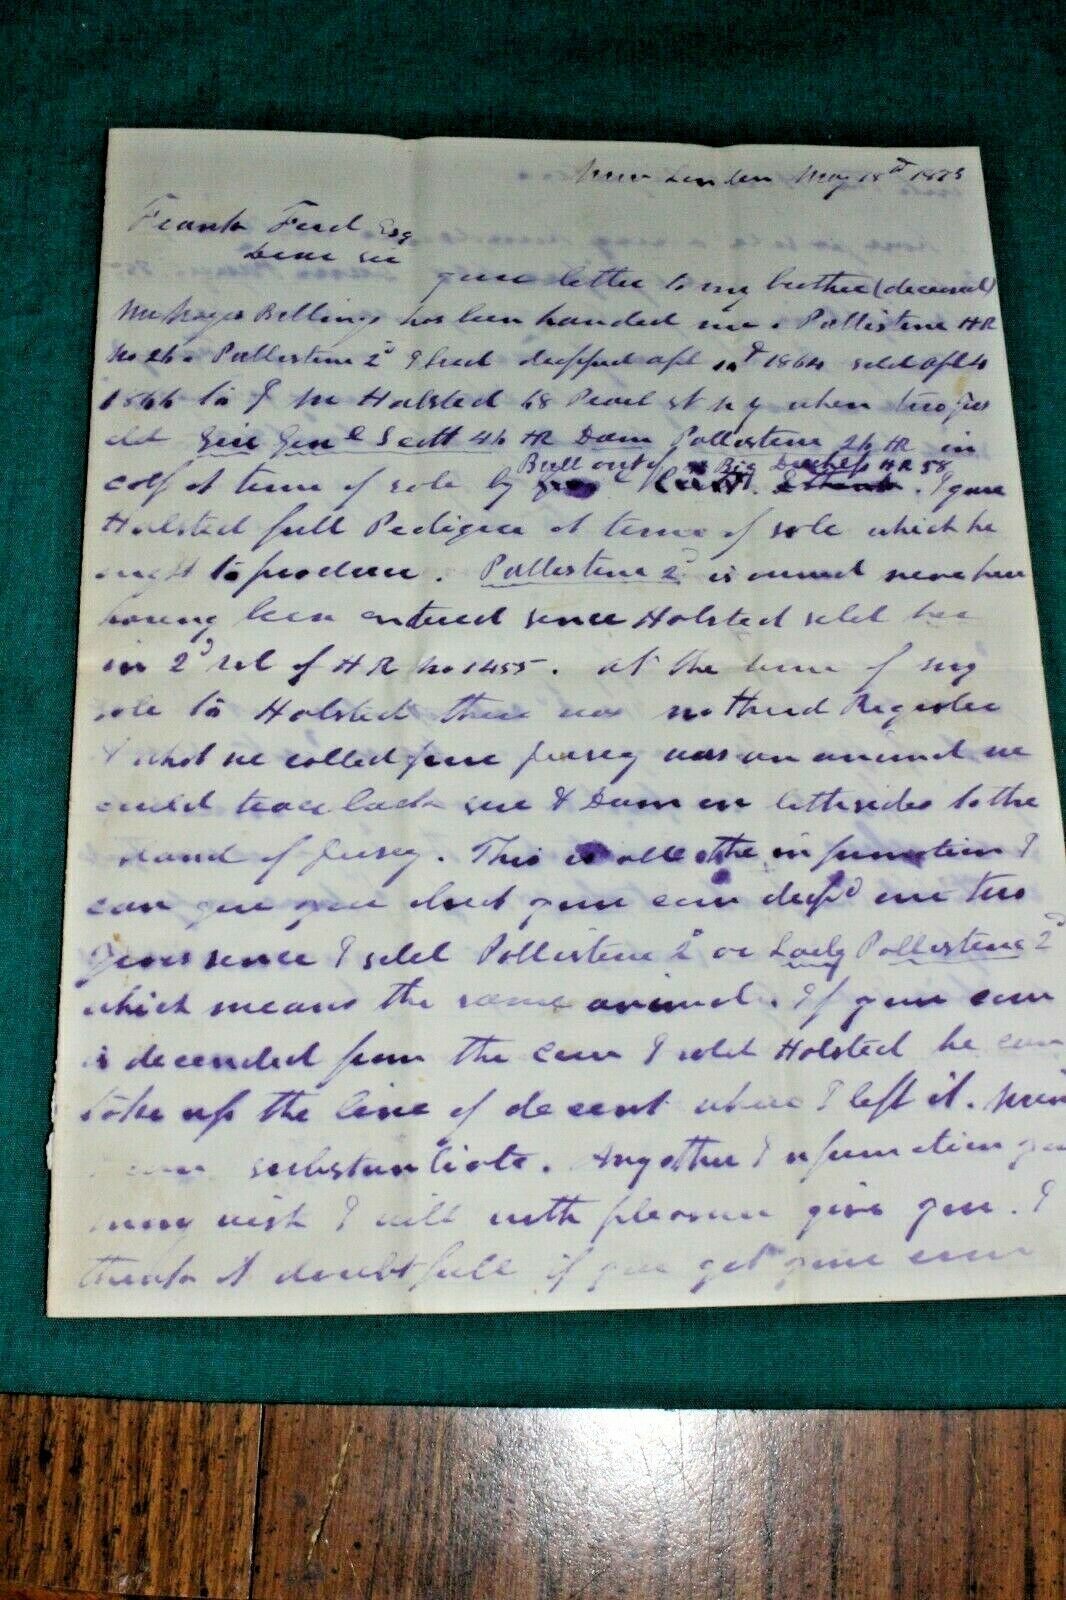 New London May 18th 1873
Frank Ford Esq
Dear Sir your letter to my brother (deceased)
Mr Billings has been handed me. Pallestine HR
No 26. Pallestine 2d I bred dropped Apl 1864 sold Apl
1866 to J M Halsted 68 Pearl St N Y when two yrs
old Sire Genl Scott 46 HR Dam Pallestine 26 HR in
calf at time of sale by Bull out of Big Duchess HR 58. I gave
Halsted full Pedigree at time of sale which he
ought to produce. Pallestine 2d is owned
having been entered since Halsted sold her
in 2d vol of HR No 1455. At the time of my
sale to Halsted there was no Herd Register
& what we called pure Jersey was an animal we
could trace back sire & Dam on both sides to the
Island of Jersey. This is all the information I
can give you about your cow dropd one two
years since I sold Pallestine 2d or Lady Pallestine 2d
which means the same animal. If your cow
is decended from the cow I sold Halsted he can
take up the line of decent where I left it.
can substantiate. Any other Information you
may wish I will with pleasure give you. I
think it doubtfull if you get your cow